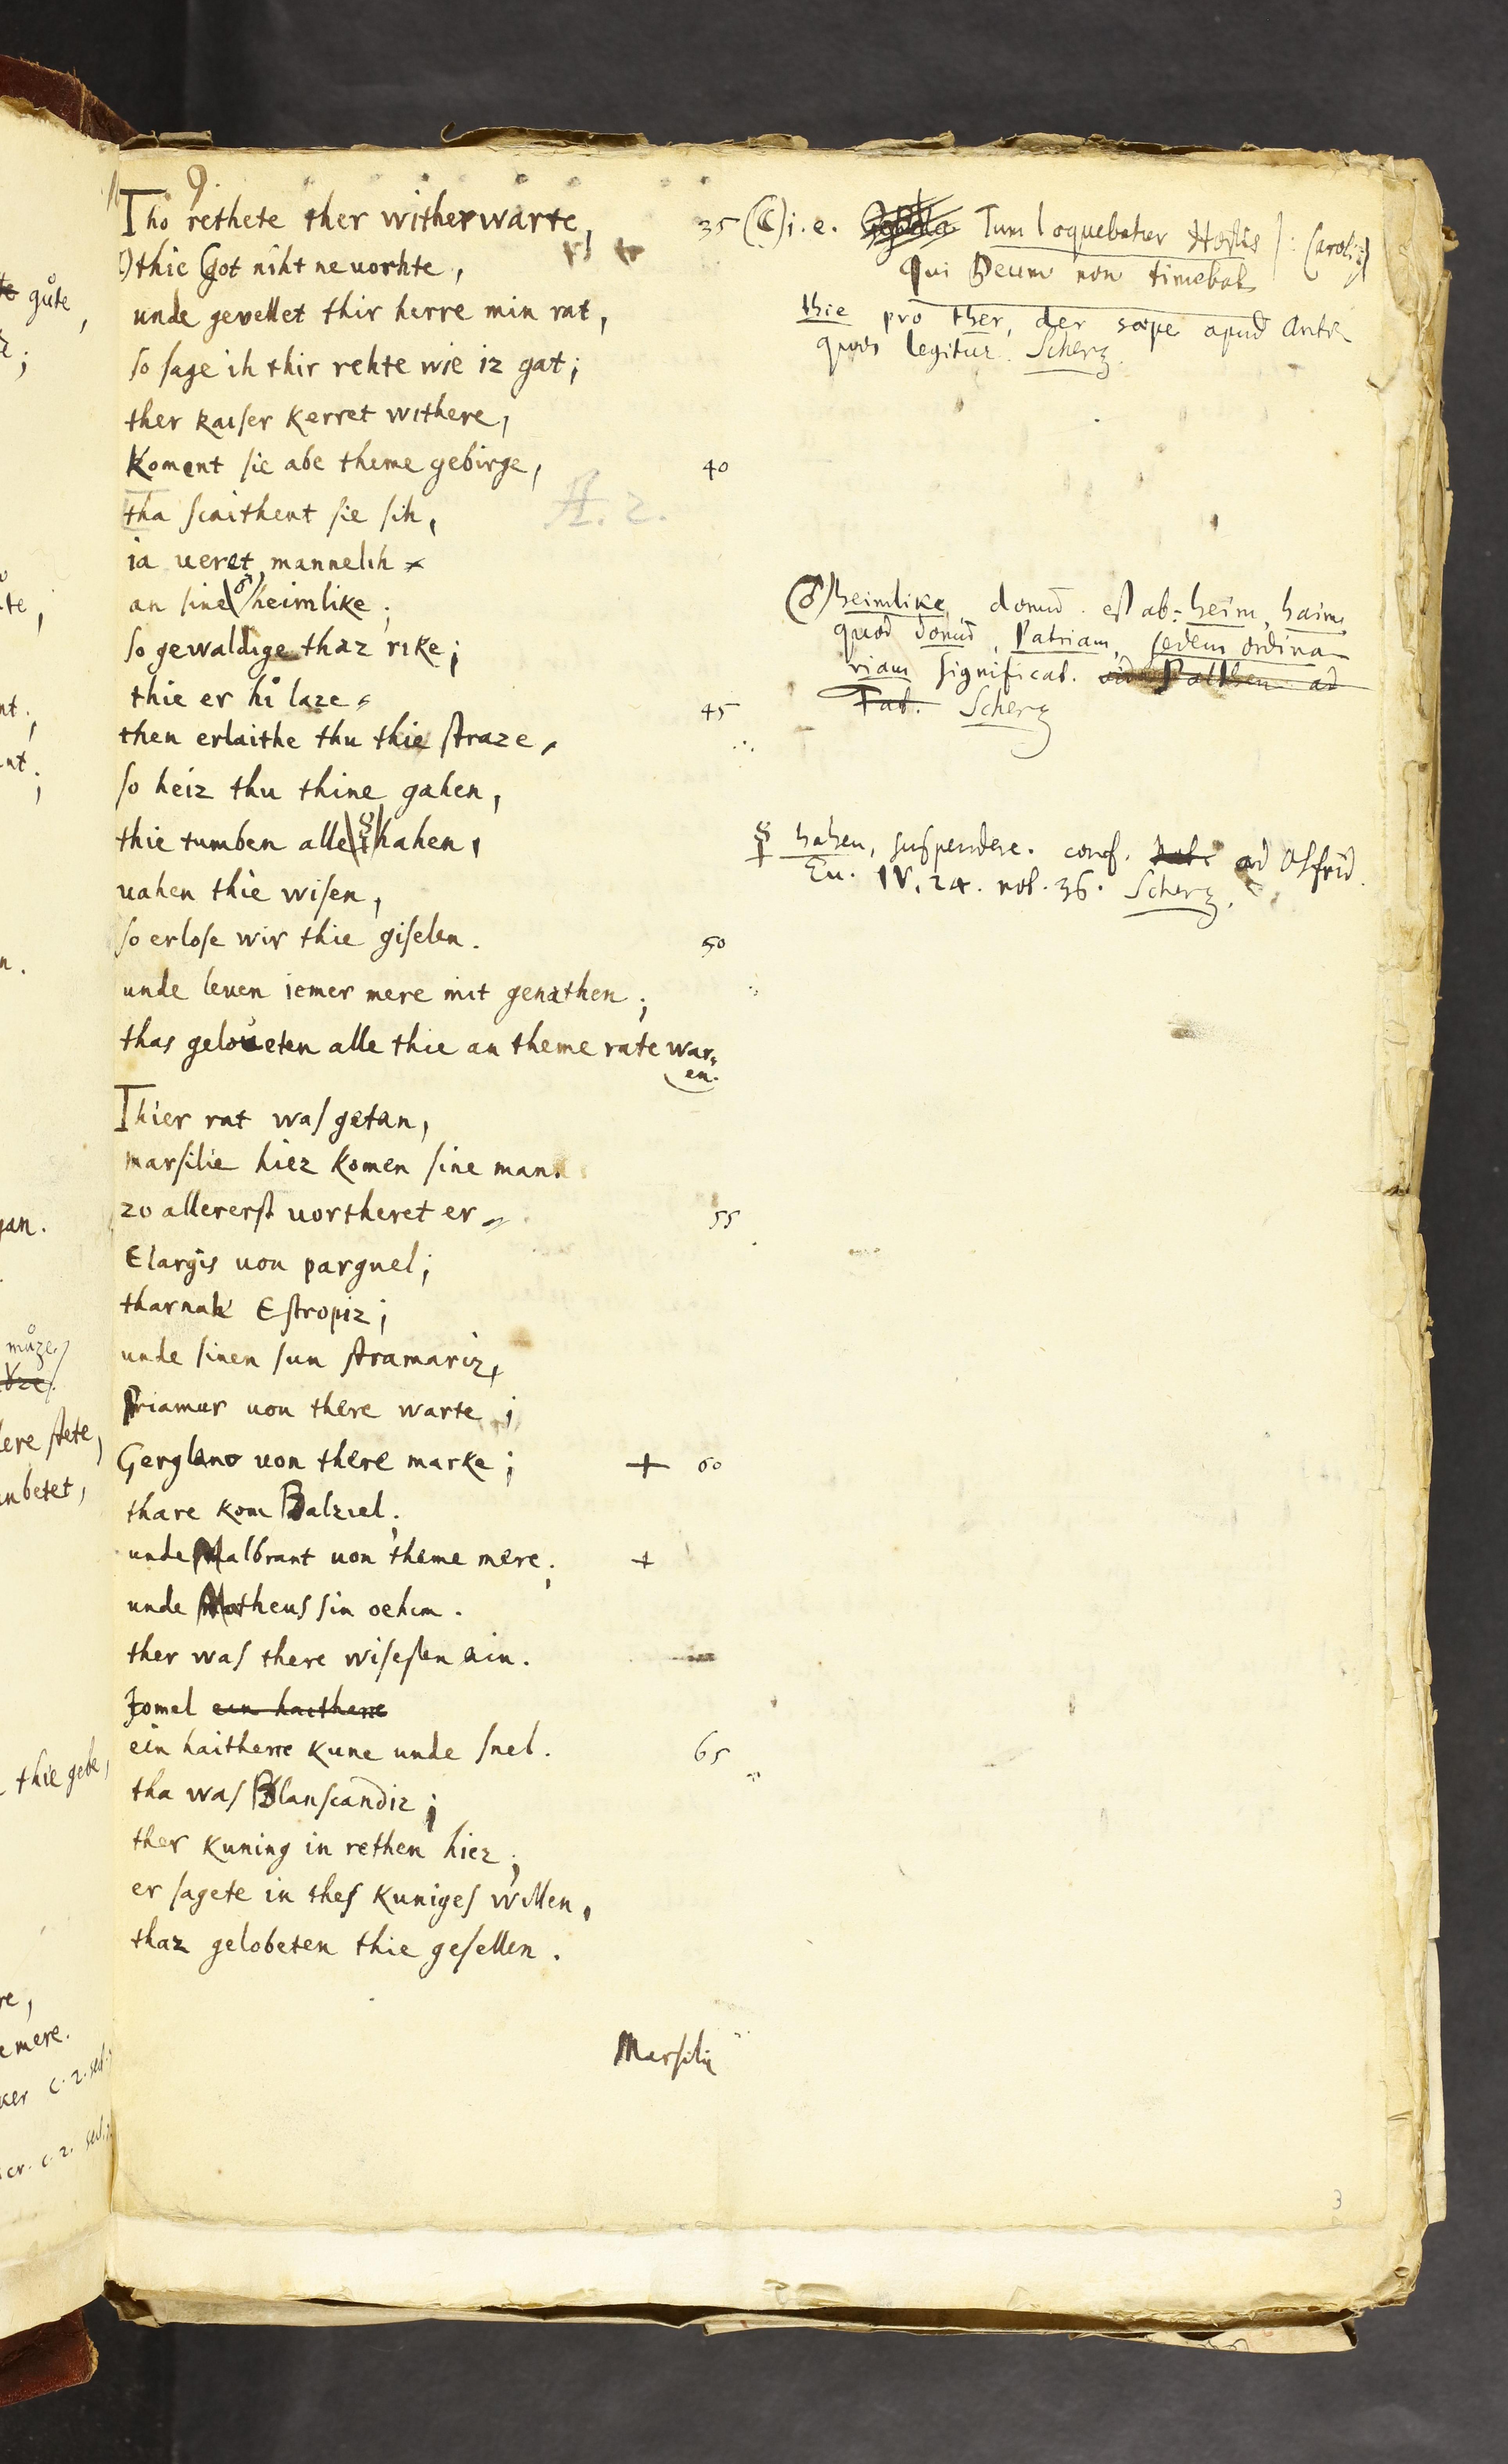 9.
Tho rethete ther witherwarte,
thie Got niht ne uorhte,
unde gevellet thir herre min rat,
so sage ih thir rehte wie iz gat;
ther kaiser kerret withere,
koment sie abe theme gebirge,
tha scaithent sie sih,
ia ueret mannelih
an sine (♂) heimlike;
so gewaldige thaz rike;
thie er hi laze
then erlaithe thu thie straze
so heiz thu thine gahen,
thie tumben alle hahen,
uahen thie wisen,
so erlose wir thie giselen.
unde leuen iemer mere mit genathen;
thas geloůeten alle thie an theme rate war=
en.
Thier rat was getan,
marsilie hiez komen sine man.
zo allererst uortheret er
Elargis uon parguel;
tharnah Estropiz;
unde sinen sun stramariz,
Priamur uon there warte;
Gerglano uon there marke;
thare kom Balziel;
unde Malbrant uon theme mere;
unde Motheus sin oehim.
ther was there wisesten ain.
Jomel ein haitherre
ein haitherre kune unde snel.
tha was Blanscandiz;
ther kuning in rethen hiez;
er sagete in thes kuniges willen,
thaz gelobeten thie gesellen.
Marsilie
35
40
45
50
55
60
65
A. 2.
i. e. Tum loquebatur Hostis (: Caroli :)
Qui Deum non timebat
thie pro ther, der sæpe apud Anti
quos legitur. Scherz.
(♂) heimlike, domum. est ab: heim, haim
quod domum, Patriam, sedem ordina
riam significat. Palthen ad
Tat. Scherz
hahen, suspendere. conf. ad Otfrid.
Eu. IV. 24. not. 36. Scherz.
3
gůte,
můze
ere stete,
anbetet,
thie gebe,
mere.